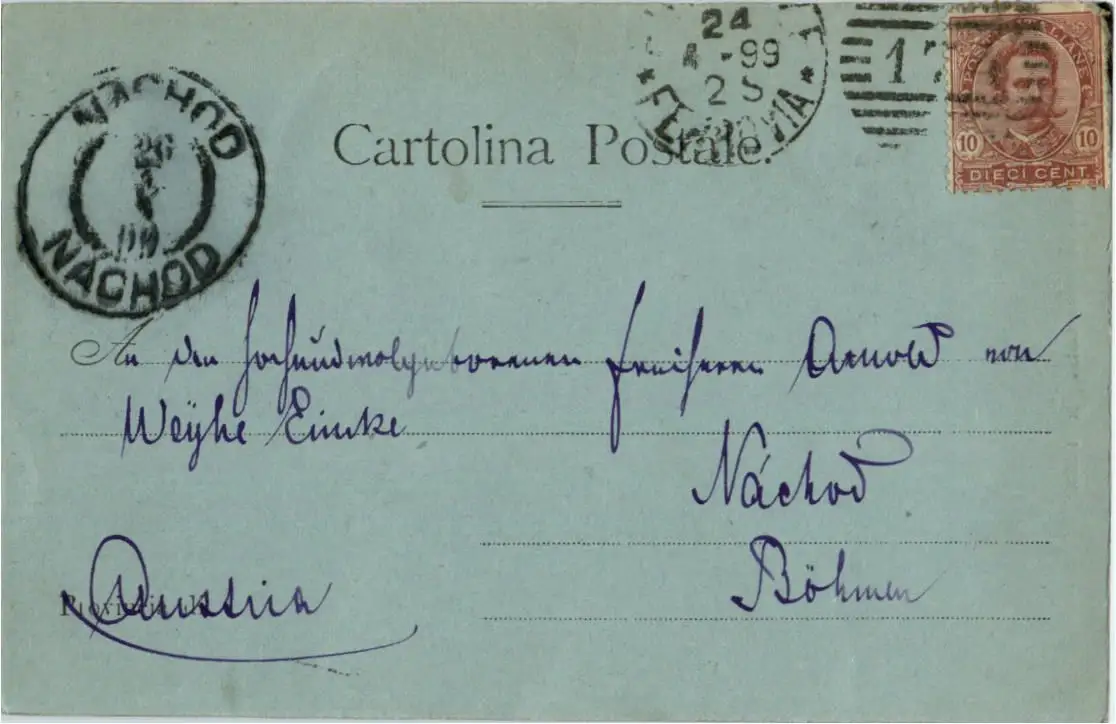 24
4 -99
2 S
FERROVIA
17
POSTE ITALIANE
10 10
DIECI CENT.
NACHOD
26
4
99
NÁCHOD
Cartolina Postale.
An den Hochundwolgeborenen Freiherrn Arnold von
Weyhe Eimke
Náchod
Böhmen
Austria